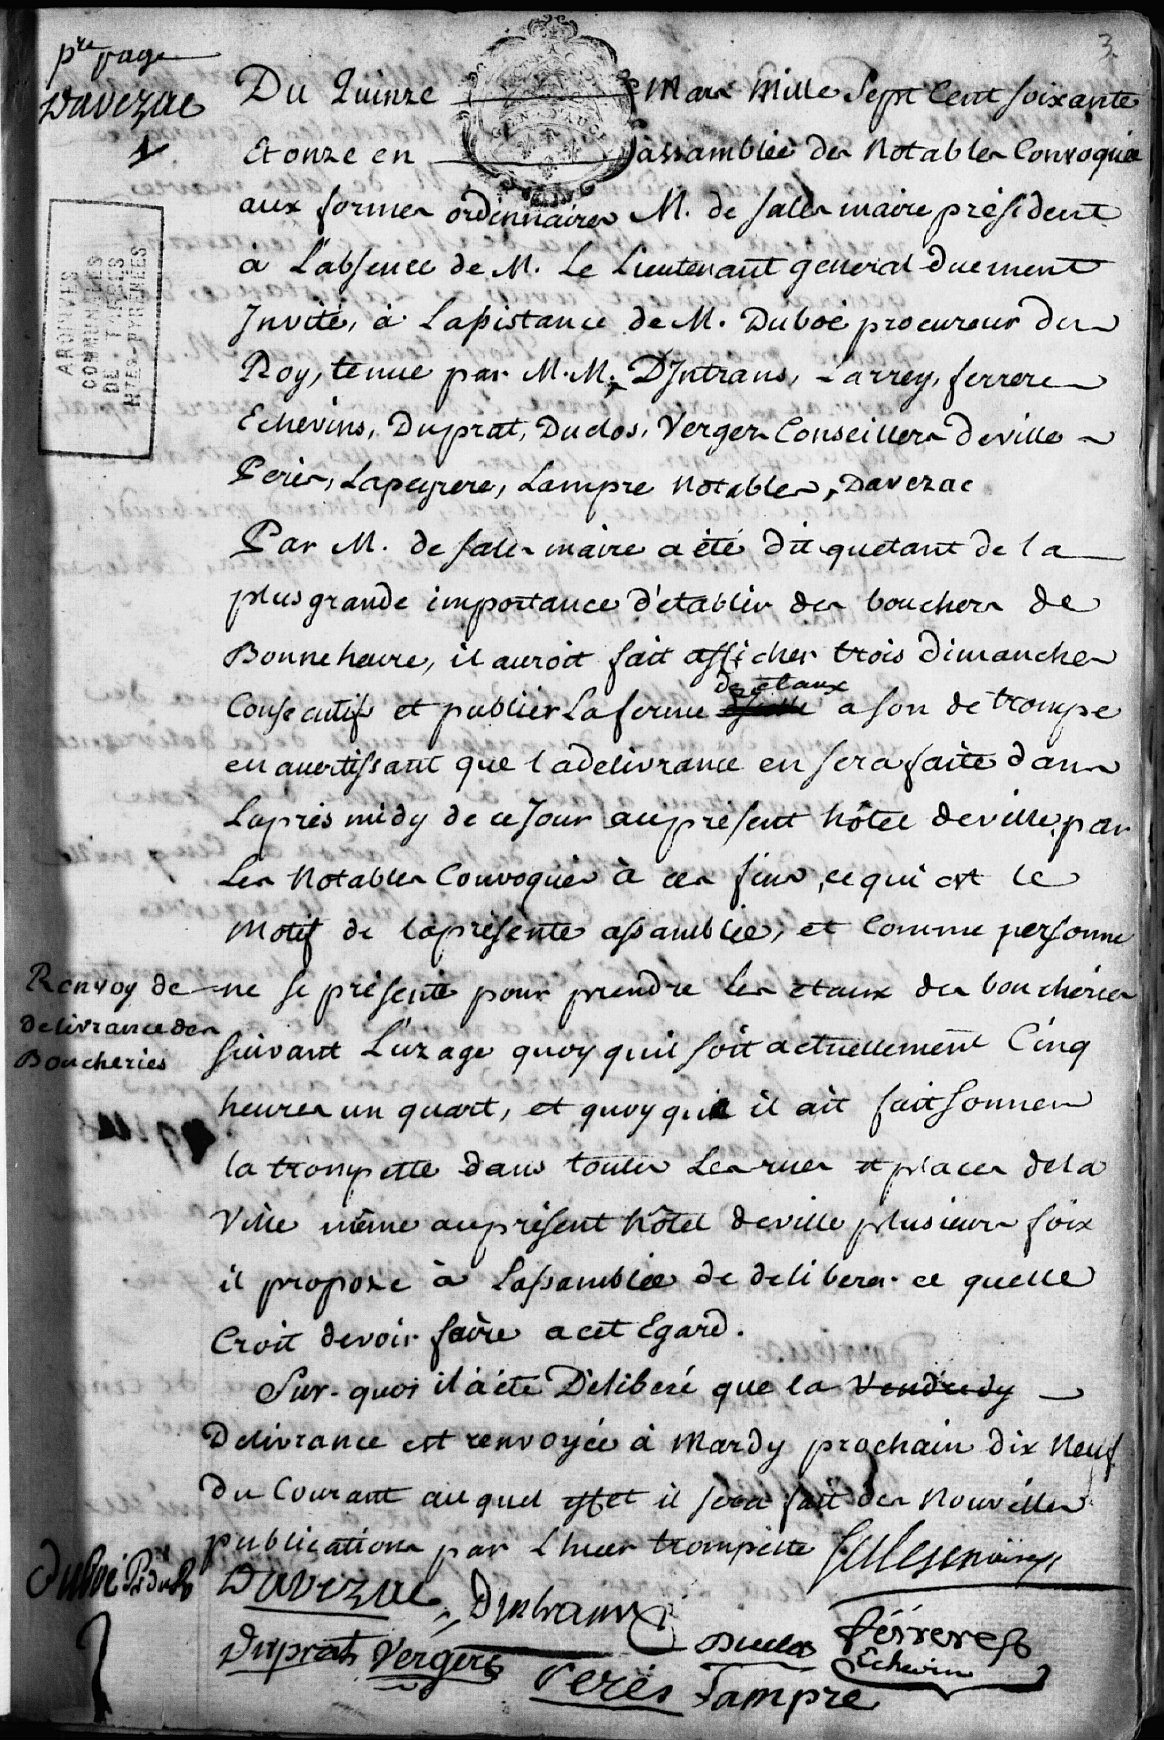 3
pre page
Davezac
1
Du Quinze Mars Mille Sept Cent soixante
Et onze en assamblée des Notables Convoquée
aux formes ordinnaires M. de sales maire président
à L'absence de M. Le Lieutenant general duement
Jnvité, à Lassistance de M. Duboé procureur du
Roy, tenue par M.M. DJntrans, Larrey, ferrere
Echevins, Duprat, Duclos, Verges Conseillers de ville
Peres, Lapeyrere, Lampre Notables, Davezac
Par M. de sales maire a été dit quetant de la
plus grande importance d'etablir des bouchers de
Bonne heure, il auroit fait afficher trois dimanches
Consecutifs et publier La ferme des etaux a son de trompe
en avertissant que la delivrance en sera faite dans
Lapres midy de ce Jour au present hôtel de ville, par
Les Notables Convoqués à ces fins, ce qui est le
Motif de la présente assamblée, et Comme personne
ne se présente pour prendre les etaux des boucheries
suivant L'uzage quoy quil soit actuellement Cinq
heures un quart, et quoy que il ait fait sonner
la trompette dans toutes Les rues et places de la
Ville même au présent hôtel de ville plusieurs foix
il propoze à Lassamblée de deliberer ce quelle
Croit devoir faire a cet Egard.
Sur quoi il a été Déliberé que la Vendredy
Delivrance est renvoyée à Mardy prochain dix Neuf
du Courant au quel effet il sera fait des Nouvelles
publications par L'huer trompette
Renvoy de
delivrance des
Boucheries
ARCHIVES
COMMUNALES
DE TARBES
HTES-PYRÉNÉES
GEN. D'AUCH
Sales maire
Duboé Pr du R
Davezac Dintrans
Duprat Verges Duclos ferrere
Echevin
Peres Lampre